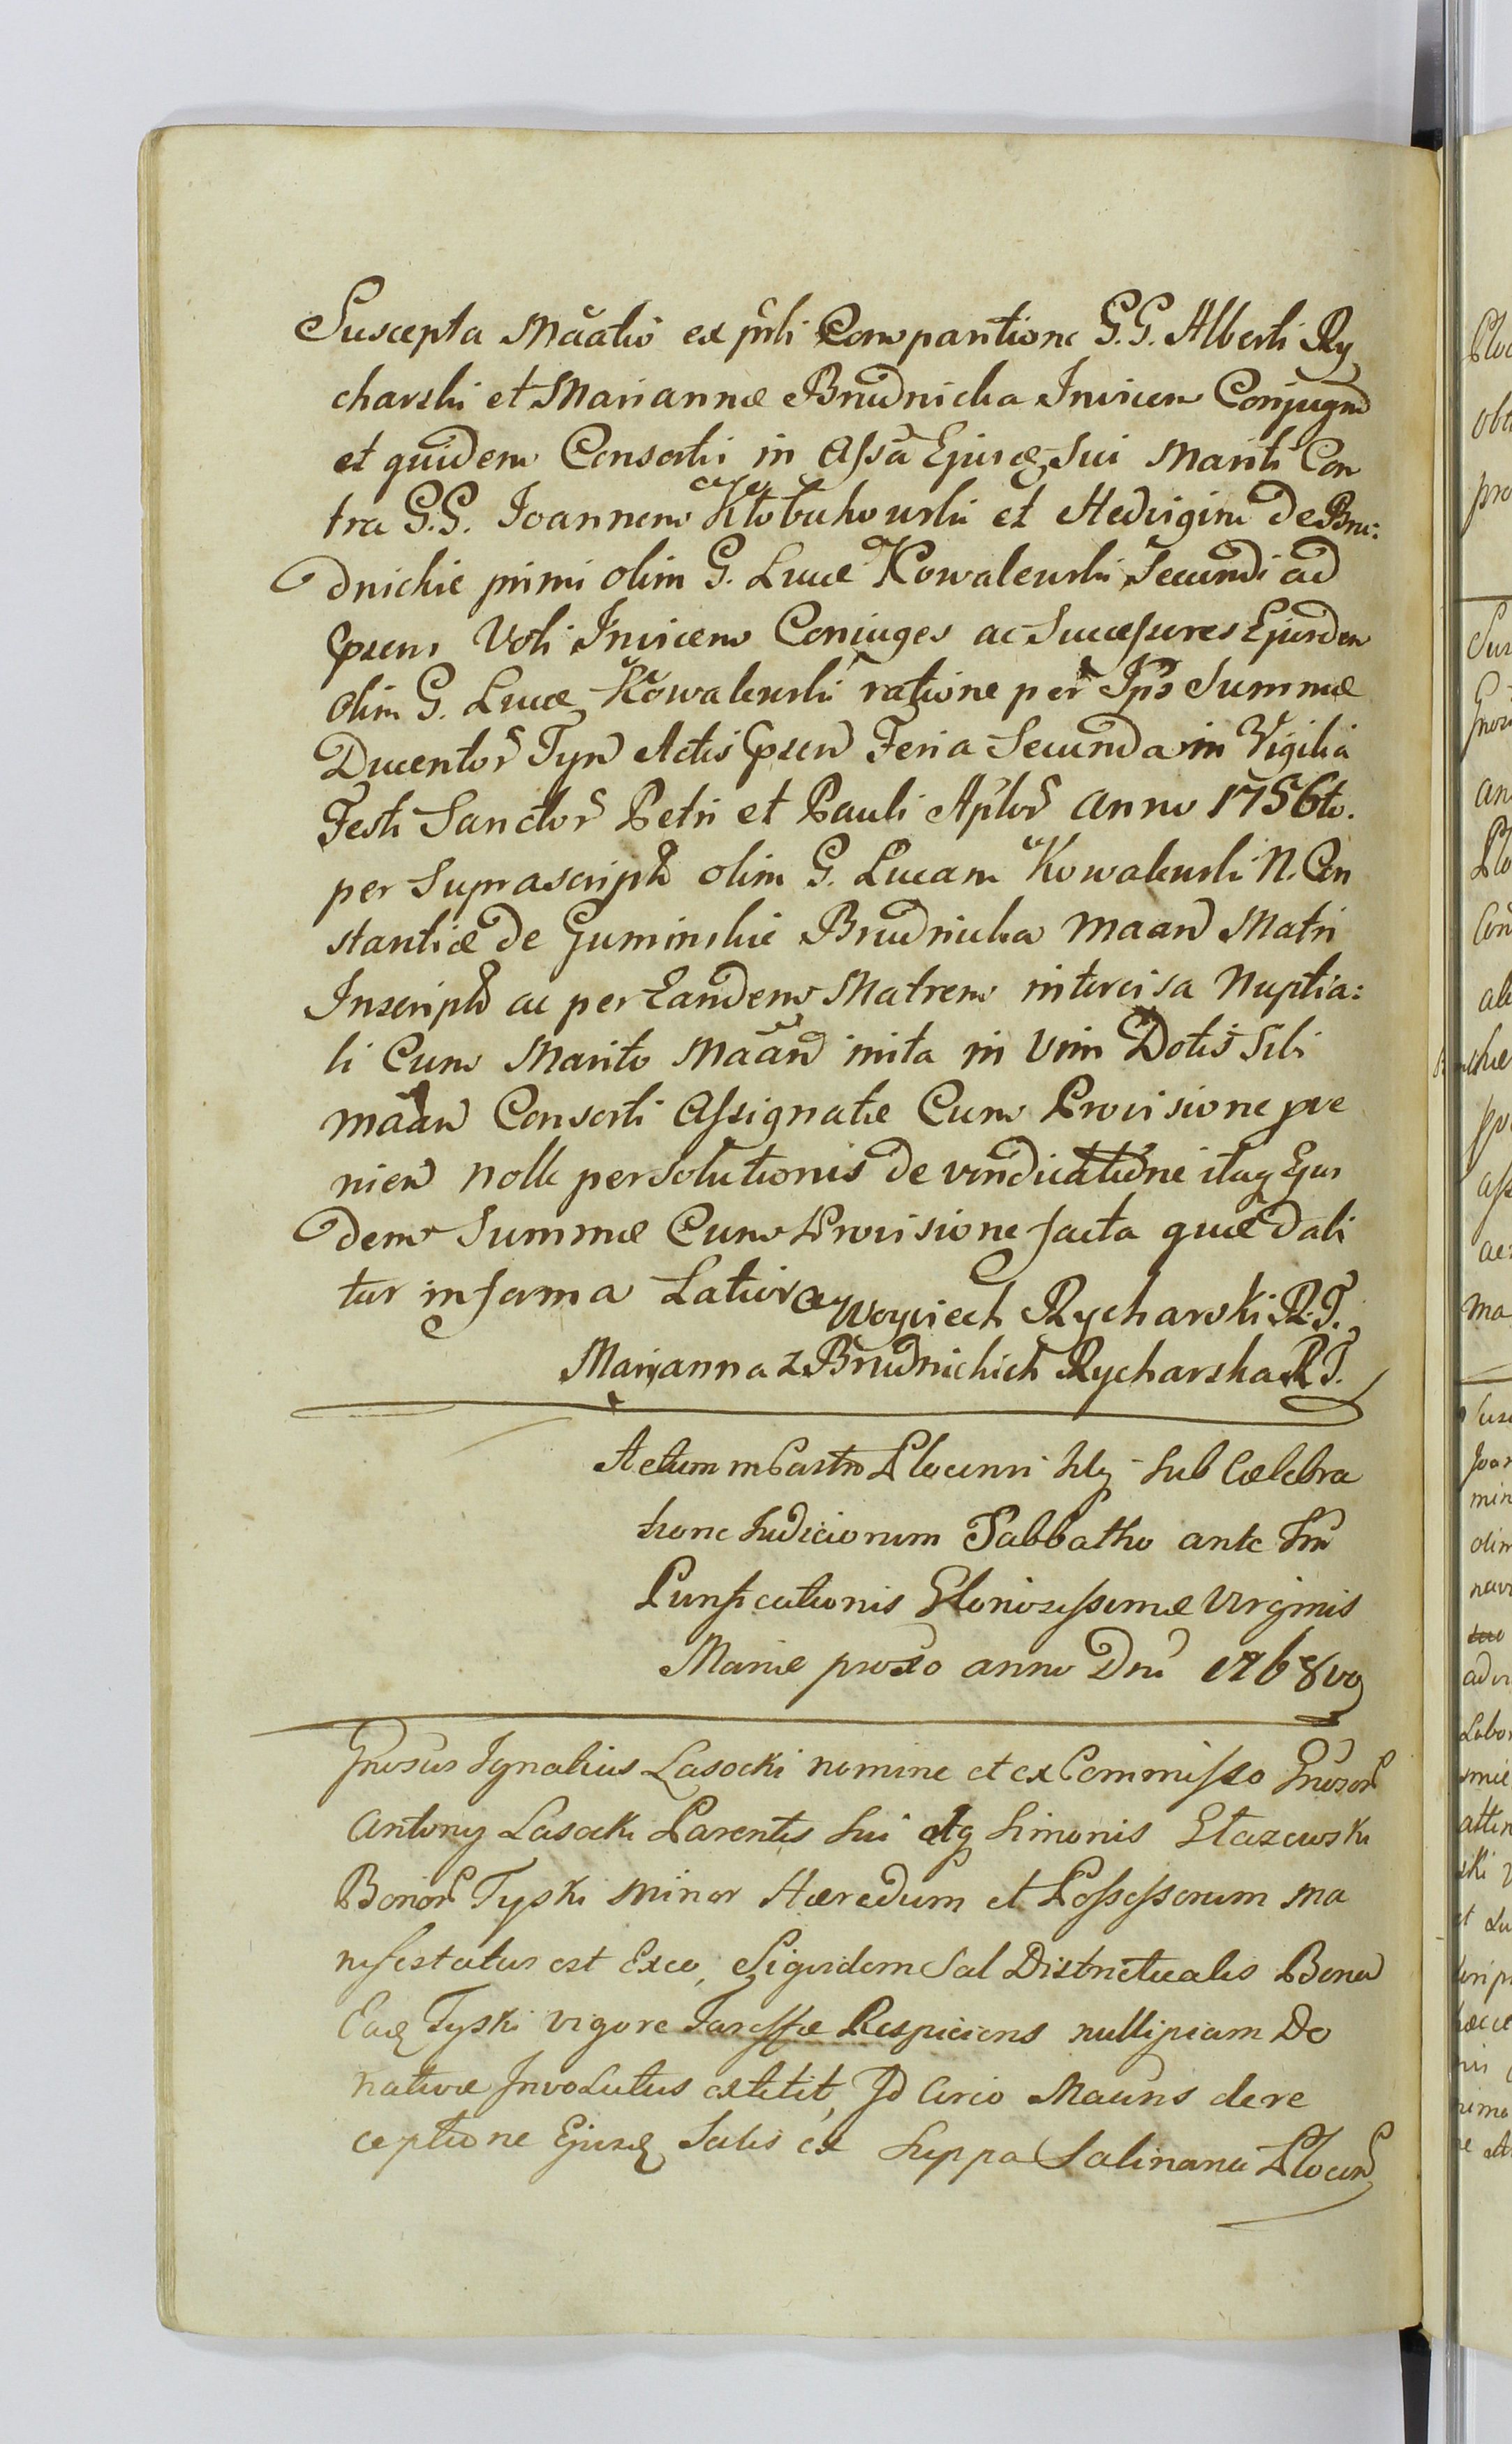 Suscepta Mãatio ex prṡti Comparitione G.G. Alberti Ry
charski et Mariannæ Brudnicka Invicem Conjugũ
et quidem Consortis in Assã Ejusd. Sui Mariti Con
tra G.G. Joannem Kłobukowski et Hedvigim de Bru:
dnickie primi olim G. Lucæ Kowalewski Secundi ad
Præsens Voti Invicem Coniuges ac Successores Ejusdem
olim G. Lucæ Kowalewski ratione per Ips Summæ
Ducentor Tyn Actis Præsen Feria Secunda in Vigilia
Festi Sanctor Petri et Pauli Aplor anno 1756to.
per Suprascript olim G. Lucam Kowalewski N. Con
stantiæ de Guminskie Brudnicka Maan Matri
Inscript ac per Eandem Matrem intercisa Nuptia:
li Cum Marito Maan inita in Vim Dotis Sibi
maan Consorti Assignatæ Cum Provisione præ
nien nolle persolutionis de vindicatione itaq Ejus
dem Summæ Cum Provisione facta quæ dabi
tur in forma Latiori
Woyciech Rycharski R.T.
Maryanna z Brudnickich Rycharska R T.
Actum in Castro Plocensi Sub Cælebra
tione Judiciorum Sabbatho ante Fm
Purificationis Gloriosissimæ Virginis
Mariæ proxo anno Dni 1768vo
Gnosus Ignatius Lasocki nomine et ex Commisso Gnosor
Antony Lasocki Parentis Sui atq Simonis Stazewski
Bonor Tyski minor Hæredum et Possessorum ma
nifestatus est Exeo, Siquidem Sal Districtualis Bona
Ead Tyski vigore Tariffæ Respiciens nullipiam Do
nativæ Involutus extitit, Id circo Mauns de re
ceptione Ejusd Salis ex Suppa Salinaria Plocen